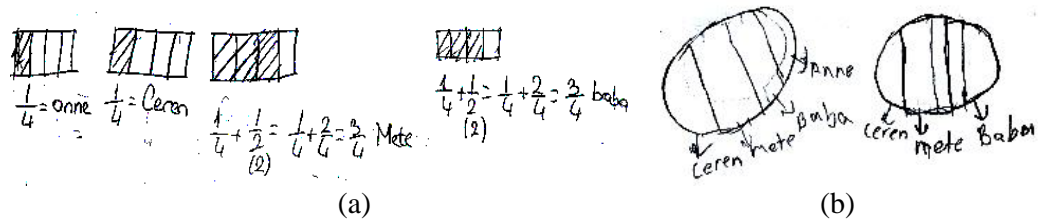 1/4 = anne
1/4 = Ceren
1/4 + 1/2 = 1/4 + 2/4 = 3/4 Mete
(2)
1/4 + 1/2 = 1/4 + 2/4 = 3/4 baba
(2)
(a)
Anne
Babja
mete
Ceren
Ceren
mete
Baba
(b)